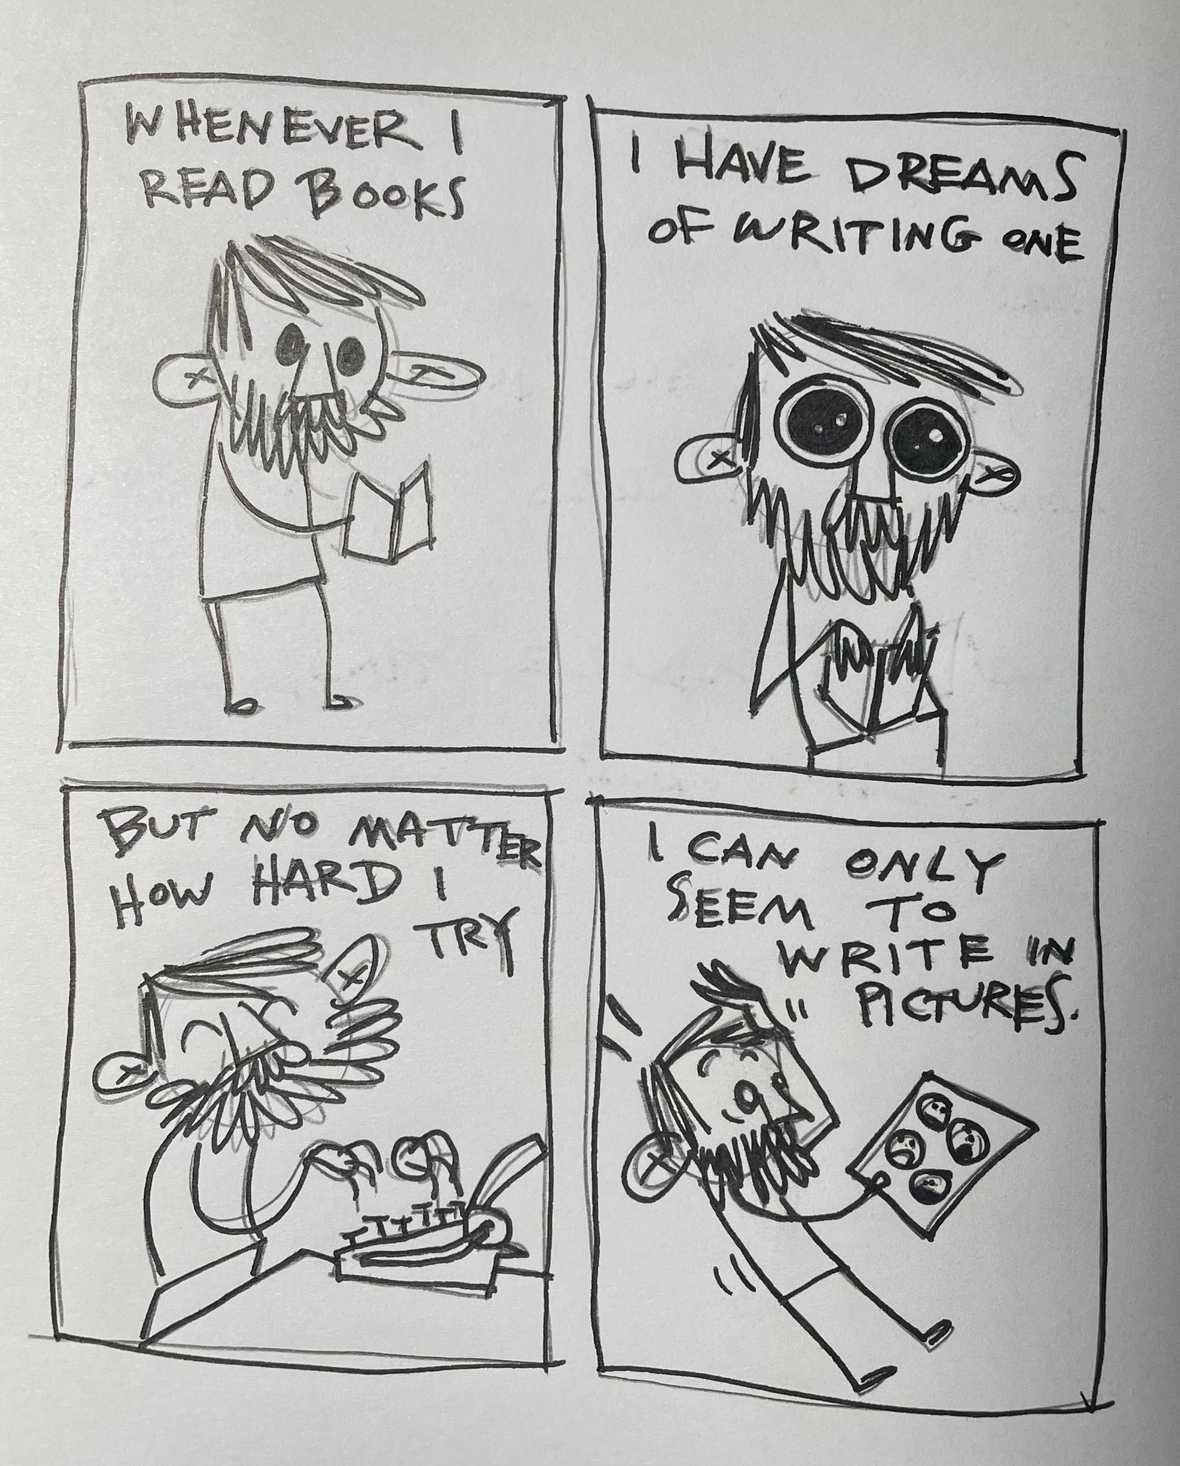 WHENEVER I
READ BOOKS
I HAVE DREAMS
OF WRITING ONE
BUT NO MATTER
HOW HARD I
TRY
I CAN ONLY
SEEM TO
WRITE IN
PICTURES.